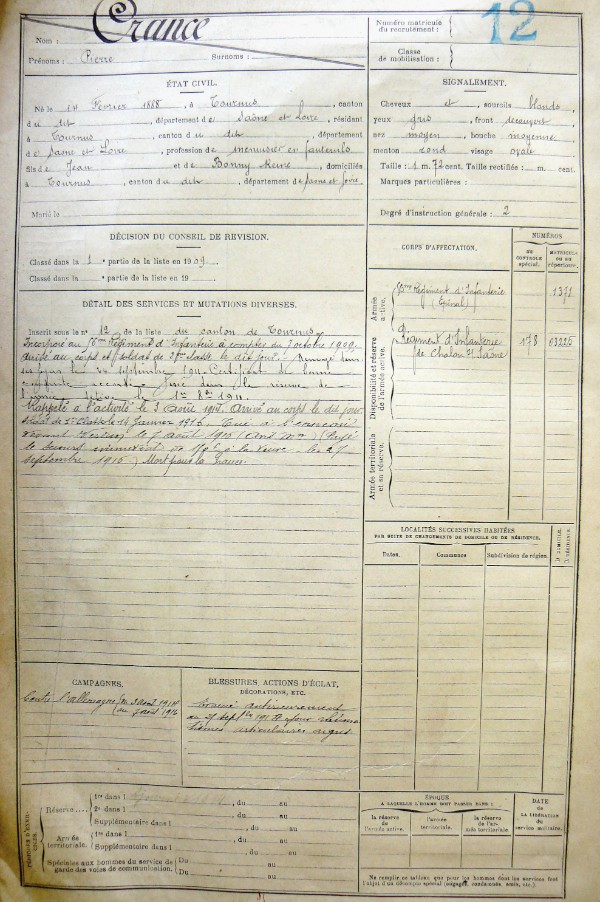 Nom : Crance
Prénoms : Pierre Surnoms :
Numéro matricule
du recrutement :
12
Classe
de mobilisation :
ÉTAT CIVIL.
Né le 14 Février 1888, à Tournus, canton
du dit, département de Saône et Loire, résidant
à Tournus, canton du dit, département
de Saône et Loire, profession de menuisier en fauteuils
fils de Jean et de Bonny Reine, domiciliés
à Tournus, canton du dit, département de Saône et Loire
Marié le
SIGNALEMENT.
Cheveux et sourcils blonds
yeux gris, front découvert
nez moyen, bouche moyenne
menton rond visage ovale
Taille : 1 m. 72 cent. Taille rectifiée : m. cent.
Marques particulières :
Degré d'instruction générale : 2
DÉCISION DU CONSEIL DE REVISION.
Classé dans la 1 partie de la liste en 1909.
Classé dans la partie de la liste en 19
DÉTAIL DES SERVICES ET MUTATIONS DIVERSES.
Inscrit sous le n° 12 de la liste du canton de Tournus
Incorporé au Régiment d'Infanterie à compter du 7 octobre 1909.
Arrivé au corps et soldat de 2e classe le dit jour.
septembre 191 Certificat de bonne
conduite accordé. Passé dans la réserve de
l'armée active le 1er 8bre 1911.
Rappelé à l'activité le 3 Août 1914. Arrivé au corps le dit jour
Soldat de classe le 14 Janvier 1916. Tué à l'ennemi
devant Verdun le 7 août 1916
Secours à la veuve le 27
septembre 1916) Mort pour la France.
CORPS D'AFFECTATION.
NUMÉROS
DU
CONTROLE
spécial.
MATRICULE
OU AU
répertoire.
Armée
active.
Régiment d'Infanterie
(Epinal)
1371
Disponibilité et réserve
de l'armée active.
Régiment d'Infanterie
de Chalon s/ Saône
178
03226
Armée territoriale
et sa réserve.
LOCALITÉS SUCCESSIVES HABITÉES
PAR SUITE DE CHANGEMENTS DE DOMICILE OU DE RÉSIDENCE.
Dates.
Communes
Subdivision de région.
D. domicile.
R. résidence.
CAMPAGNES.
Contre l'Allemagne du 3 août 1914
au 7 août 1916
BLESSURES, ACTIONS D'ÉCLAT,
DÉCORATIONS, ETC.
Evacué antérieurement
au 27 Septbre 1915 pour rhuma
tismes articulaires aigus
PÉRIODES D'EXERCICES.
Réserve.... 1re dans l , du au
2e dans l , du au
Supplémentaire dans l , du au
Armée
territoriale. 1re dans l , du au
Supplémentaire dans l , du au
Spéciales aux hommes du service de
garde des voies de communication. Du au
Du au
ÉPOQUE
A LAQUELLE L'HOMME DOIT PASSER DANS :
la réserve
de l'armée active.
l'armée
territoriale.
la réserve
de l'ar-
mée territoriale
DATE
DE LA LIBÉRATION
du service militaire.
Ne remplir ce tableau que pour les hommes dont les services font
l'objet d'un décompte spécial (engagés, condamnés, omis, etc.).